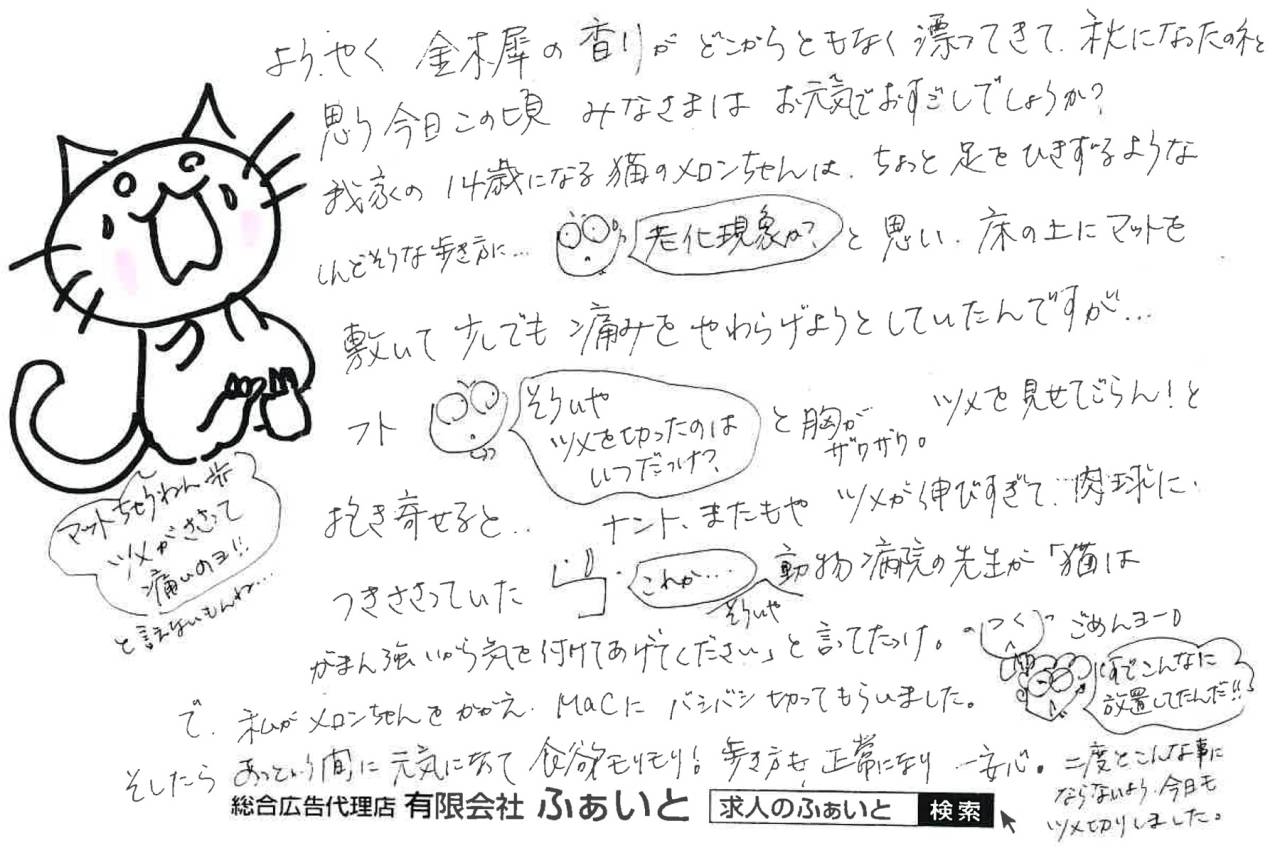 ようやく 金木犀の香りが どこからともなく漂ってきて、秋になったのねと
思う今日この頃 みなさまは お元気でおすごしでしょうか？
我家の 14歳になる猫のメロンちゃんは、ちょっと足をひきずるような
しんどそうな歩き方に… 老化現象か？ と思い、床の上にマットを
敷いて 少しでも 痛みを やわらげようとしていたんですが…
フト そういや
ツメを切ったのは
いつだっけ？
と胸が
ザワザワ。
ツメを見せてごらん！と
抱き寄せると‥ ナント、またもや ツメが伸びすぎて、肉球に、
つきささっていた これか… そういや 動物病院の先生が「猫は
がまん強いから気を付けてあげてください」と言ってたっけ。
で、私がメロンちゃんをかかえ、MaCに バシバシ切ってもらいました。
そしたら あっという間に元気になって 食欲モリモリ！歩き方も、正常になり 一安心。
二度とこんな事に
ならないよう、今日も
ツメ切りしました。
ごめんヨーロ
こんなに
放置してたんだ!!
マットちゃうねん
ツメがささって
痛いのヨ!!
と言えないもんね…
総合広告代理店 有限会社 ふぁいと 求人のふぁいと 検索